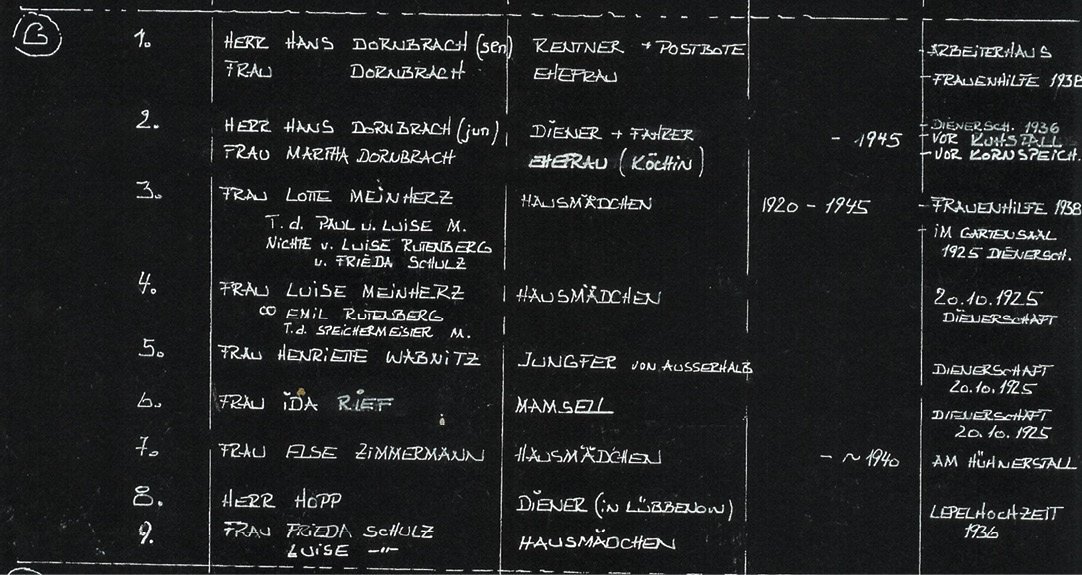 B
1. HERR HANS DORNBRACH (sen) RENTNER + POSTBOTE - ARBEITERHAUS
FRAU DORNBRACH EHEFRAU - FRAUENHILFE 1938
2. HERR HANS DORNBRACH (jun) DIENER + FAHRER - 1945 DIENERSCH. 1936
- VOR KUHSTALL
FRAU MARTHA DORNBRACH EHEFRAU (KÖCHIN) - VOR KORNSPEICH.
3. FRAU LOTTE MEINHERZ HAUSMÄDCHEN 1920 - 1945 - FRAUENHILFE 1938
T. d. PAUL u. LUISE M. - IM GARTENSAAL
NICHTE v. LUISE RUTENBERG 1925 DIENERSCH.
u. FRIEDA SCHULZ
4. FRAU LUISE MEINHERZ HAUSMÄDCHEN 20.10.1925
∞ EMIL RUTENBERG DIENERSCHAFT
T.d. SPEICHERMEISTER M.
5. FRAU HENRIETTE WABNITZ JUNGFER VON AUSSERHALB DIENERSCHAFT
20.10.1925
6. FRAU IDA RIEF MAMSELL DIENERSCHAFT
20.10.1925
7. FRAU ELSE ZIMMERMANN HAUSMÄDCHEN - ~ 1940 AM HÜHNERSTALL
8. HERR HOPP DIENER (IN LÜBBENOW) LEPELHOCHZEIT
1936
9. FRAU FRIEDA SCHULZ HAUSMÄDCHEN
LUISE -"-